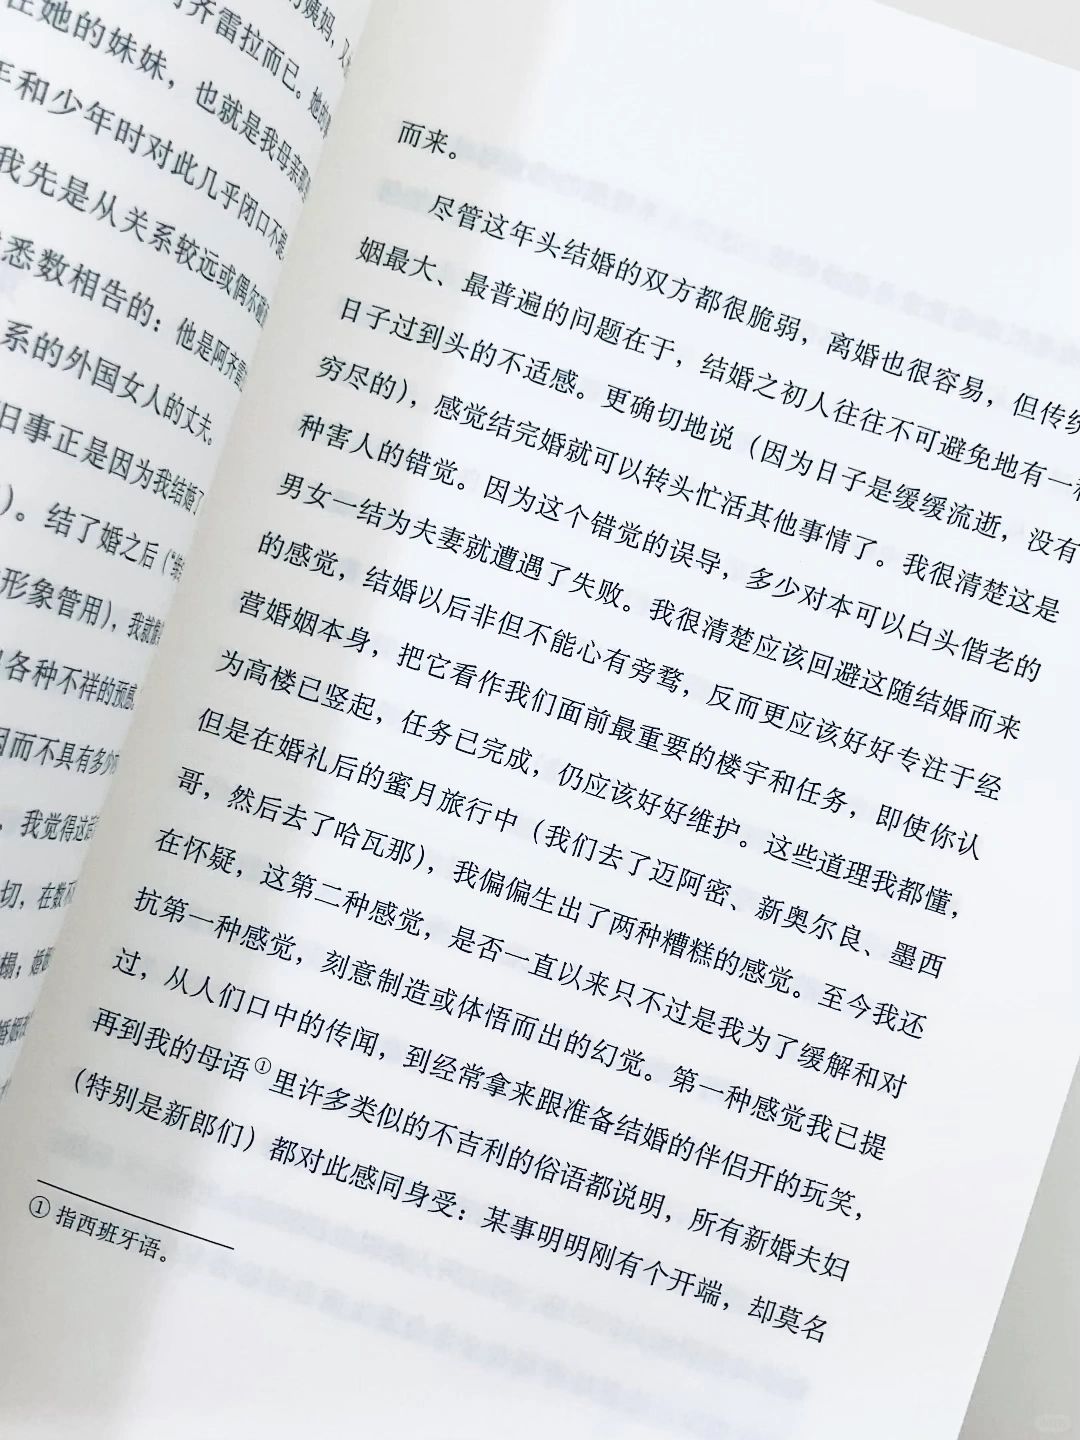 的姨妈，又
齐雷拉而已。她的
在她的妹妹，也就是我母亲那里
年和少年时对此几乎闭口不提
我先是从关系较远或偶尔碰
悉数相告的：他是阿齐雷
系的外国女人的丈夫。
旧事正是因为我结婚了
）。结了婚之后（“结
形象管用），我就
各种不祥的预感
因而不具有多少
，我觉得这
切，在数
榻；婚姻
婚姻
而来。
尽管这年头结婚的双方都很脆弱，离婚也很容易，但传统
姻最大、最普遍的问题在于，结婚之初人往往不可避免地有一种
日子过到头的不适感。更确切地说（因为日子是缓缓流逝，没有
穷尽的），感觉结完婚就可以转头忙活其他事情了。我很清楚这是
种害人的错觉。因为这个错觉的误导，多少对本可以白头偕老的
男女一结为夫妻就遭遇了失败。我很清楚应该回避这随结婚而来
的感觉，结婚以后非但不能心有旁骛，反而更应该好好专注于经
营婚姻本身，把它看作我们面前最重要的楼宇和任务，即使你认
为高楼已竖起，任务已完成，仍应该好好维护。这些道理我都懂，
但是在婚礼后的蜜月旅行中（我们去了迈阿密、新奥尔良、墨西
哥，然后去了哈瓦那），我偏偏生出了两种糟糕的感觉。至今我还
在怀疑，这第二种感觉，是否一直以来只不过是我为了缓解和对
抗第一种感觉，刻意制造或体悟而出的幻觉。第一种感觉我已提
过，从人们口中的传闻，到经常拿来跟准备结婚的伴侣开的玩笑，
再到我的母语①里许多类似的不吉利的俗语都说明，所有新婚夫妇
（特别是新郎们）都对此感同身受：某事明明刚有个开端，却莫名
① 指西班牙语。